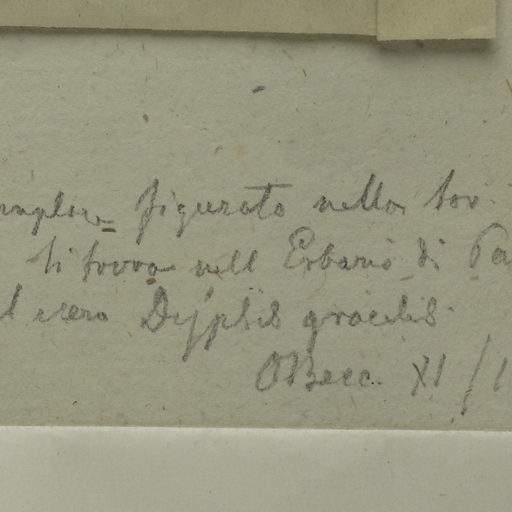 figurato nella tav.
si trova nell Erbario di Pa
vero Dypsis gracilis
OBecc. XI/1